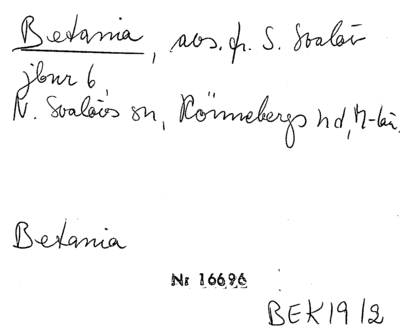 Betania, avs. fr. S. Svalöv
jbnr 6
N. Svalövs sn, Rönnebergs hd, M-län.
Betania
Nr 16696
BEK 19/2